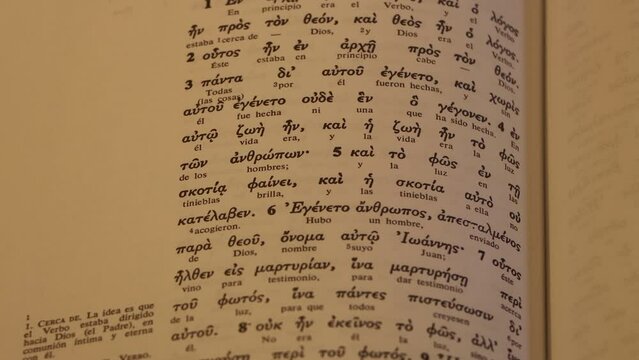 1 Ἐν ἀρχῇ ἦν ὁ λόγος, καὶ ὁ λόγος
En principio era el Verbo, y el Verbo
ἦν πρὸς τὸν θεόν, καὶ θεὸς ἦν ὁ λόγος.
estaba ¹cerca de — Dios, ²y Dios era el Verbo.
2 οὗτος ἦν ἐν ἀρχῇ πρὸς τὸν θεόν.
Éste estaba en principio cabe — Dios.
3 πάντα δι' αὐτοῦ ἐγένετο, καὶ χωρὶς
Todas ³por él fueron hechas, y sin
(las cosas)
αὐτοῦ ἐγένετο οὐδὲ ἓν ὃ γέγονεν. 4 ἐν
él fue hecha ni una que ha sido hecha. En
αὐτῷ ζωὴ ἦν, καὶ ἡ ζωὴ ἦν τὸ φῶς
él vida era, y la vida era la luz
τῶν ἀνθρώπων· 5 καὶ τὸ φῶς ἐν τῇ
de los hombres; y la luz en las
σκοτίᾳ φαίνει, καὶ ἡ σκοτία αὐτὸ οὐ
tinieblas brilla, y las tinieblas a ella no
κατέλαβεν. 6 Ἐγένετο ἄνθρωπος, ἀπεσταλμένος
⁴acogieron. Hubo un hombre, enviado
παρὰ θεοῦ, ὄνομα αὐτῷ Ἰωάννης· 7 οὗτος
de Dios, nombre ⁵suyo Juan; éste
ἦλθεν εἰς μαρτυρίαν, ἵνα μαρτυρήσῃ περὶ
vino para testimonio, para dar testimonio acerca
τοῦ φωτός, ἵνα πάντες πιστεύσωσιν δι'
de la luz, para que todos creyesen por
αὐτοῦ. 8 οὐκ ἦν ἐκεῖνος τὸ φῶς, ἀλλ'
él. No era él la luz,
περὶ τοῦ φωτός. 9
1
1. CERCA DE. La idea es que
el Verbo estaba dirigido
hacia Dios (el Padre), en
comunión íntima y eterna
con él.
VERBO.